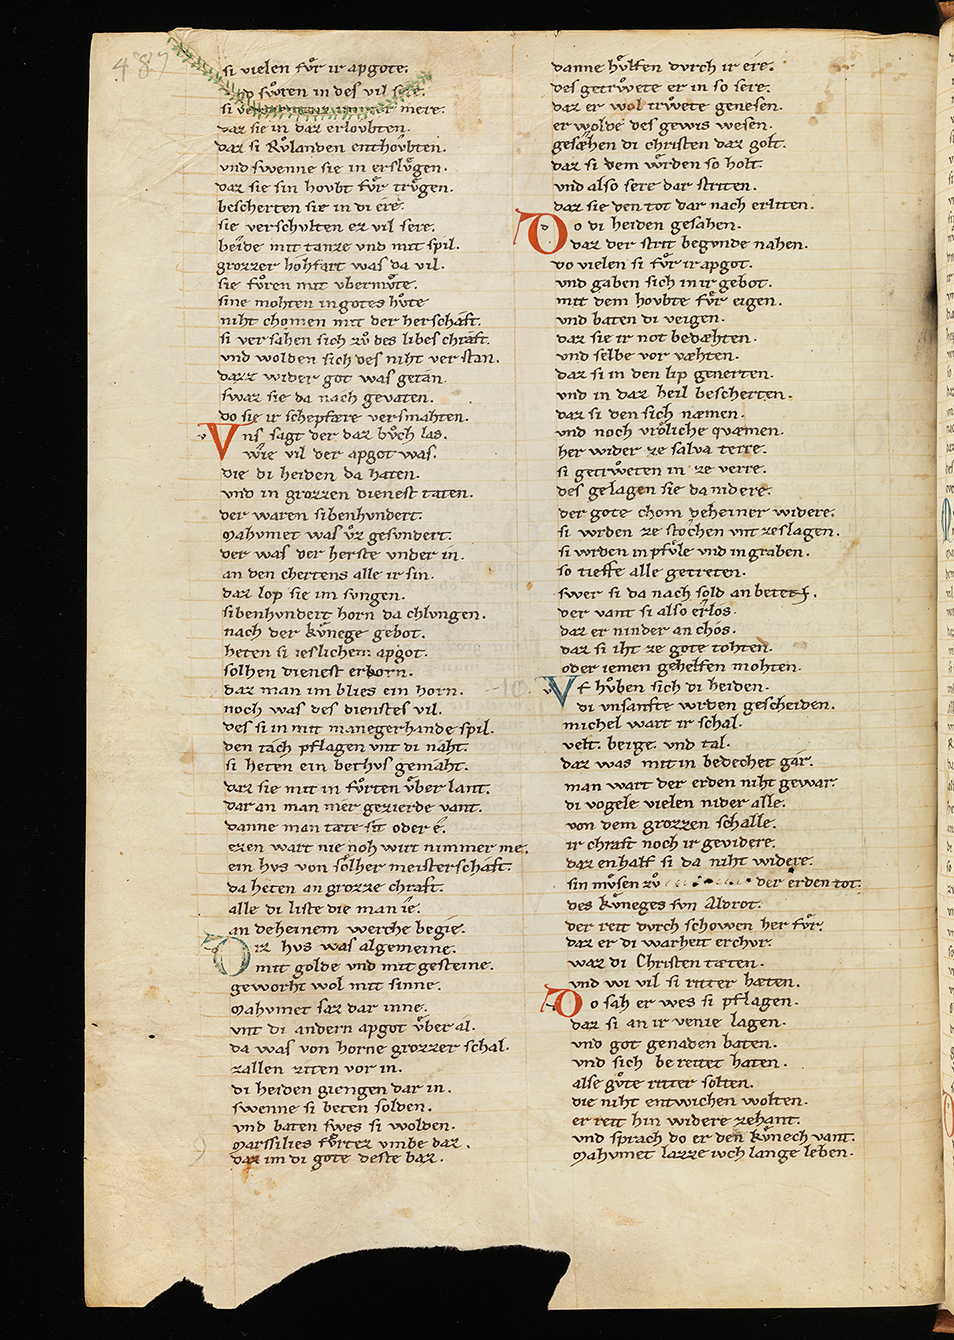 487
si vielen fuͦr ir apgote.
do suͦten in des vil sere.
si immer mere.
daz sie in daz erlovbten.
daz si Ruͦlanden enthovbten.
vnd swenne sie in ersluͦgen.
daz sie sin hovbt fuͦr truͦgen.
bescherten sie in di ere.
sie verschvlten ez vil sere.
beide mit tanze vnd mit spil.
grozzer hohfart was da vil.
sie fuͦren mit vbermuͦte.
sine mohten in gotes huͦte
niht chomen mit der herschaft.
si versahen sich zuͦ des libes chraft.
vnd wolden sich des niht verstan.
dazz wider got was getan.
swaz sie da nach gevaten.
do sie ir schepfære versmahten.
Vns sagt der daz buͦch las.
wie vil der apgot was.
die di heiden da haten.
vnd in grozzen dienest taten.
der waren sibenhvndert.
Mahvmet was uͦz gesvndert.
der was der herste vnder in.
an den chertens alle ir sin.
daz lop sie im svngen.
sibenhvndert horn da chlvngen.
nach der kuͤnege gebot.
heten si ieslichem apgot.
solhen dienest erborn.
daz man im blies ein horn.
noch was des dienstes vil.
des si in mit manegerhande spil.
den tach pflagen vnt di naht.
si heten ein bethvs gemaht.
daz sie mit in fuͦrten uͦber lant.
dar an man mer gezierde vant.
danne man tæte sit oder e.
ezen wart nie noh wirt nimmer me.
ein hvs von soͤlher meisterschaft.
da heten an grozze chraft.
alle di liste die man ie.
an deheinem werche begie.
Diz hvs was algemeine.
mit golde vnd mit gesteine.
geworht wol mit sinne.
Mahvmet saz dar inne.
vnt di andern apgot uͦber al.
da was von horne grozzer schal.
zallen ziten vor in.
di heiden giengen dar in.
swenne si beten solden.
vnd baten swes si wolden.
Marssilies fuͦrtez vmbe daz.
daz im di gote deste baz.
danne huͤlfen dvrch ir ere.
des getrwete er in so sere.
daz er wol trwete genesen.
er wolde des gewis wesen.
gesæhen di christen daz golt.
daz si dem wrden so holt.
vnd also sere dar striten.
daz sie den tot dar nach erliten.
Do di heiden gesahen.
daz der strit begvnde nahen.
do vielen si fuͦr ir apgot.
vnd gaben sich in ir gebot.
mit dem hovbte fuͦr eigen.
vnd baten di veigen.
daz sie ir not bedæhten.
vnd selbe vor væhten.
daz si in den lip generten.
vnd in daz heil bescherten.
daz si den sich næmen.
vnd noch vroͤliche quæmen.
her wider ze salva terre.
si getrweten in ze verre.
des gelagen sie da nidere.
der gote chom deheiner widere.
si wrden ze stochen vnt zeslagen.
si wrden in pfuͦle vnd in graben.
so tieffe alle getreten.
swer si da nach sold an beten.
der vant si also erlos.
daz er ninder an chos.
daz si iht ze gote tohten.
oder iemen gehelfen mohten.
Vf huͦben sich di heiden.
di vnsanfte wrden gescheiden.
michel wart ir schal.
velt. berge. vnd tal.
daz was mit in bedechet gar.
man wart der erden niht gewar.
di vogele vielen nider alle.
von dem grozzen schalle.
ir chraft noch ir gevidere.
daz enhalf si da niht widere.
sin muͦsen zuͦ der erden tot.
des kuͤneges svn Aldrot.
der reit dvrch schowen her fuͦr.
daz er di warheit erchvr.
waz di Christen tæten.
vnd wi vil si ritter hæten.
Do sah er wes si pflagen.
daz si an ir venie lagen.
vnd got genaden baten.
vnd sich bereitet haten.
alse guͦte ritter solten.
die niht entwichen wolten.
er reit hin widere zehant.
vnd sprach do er den kuͤnech vant.
Mahvmet lazze iwch lange leben.